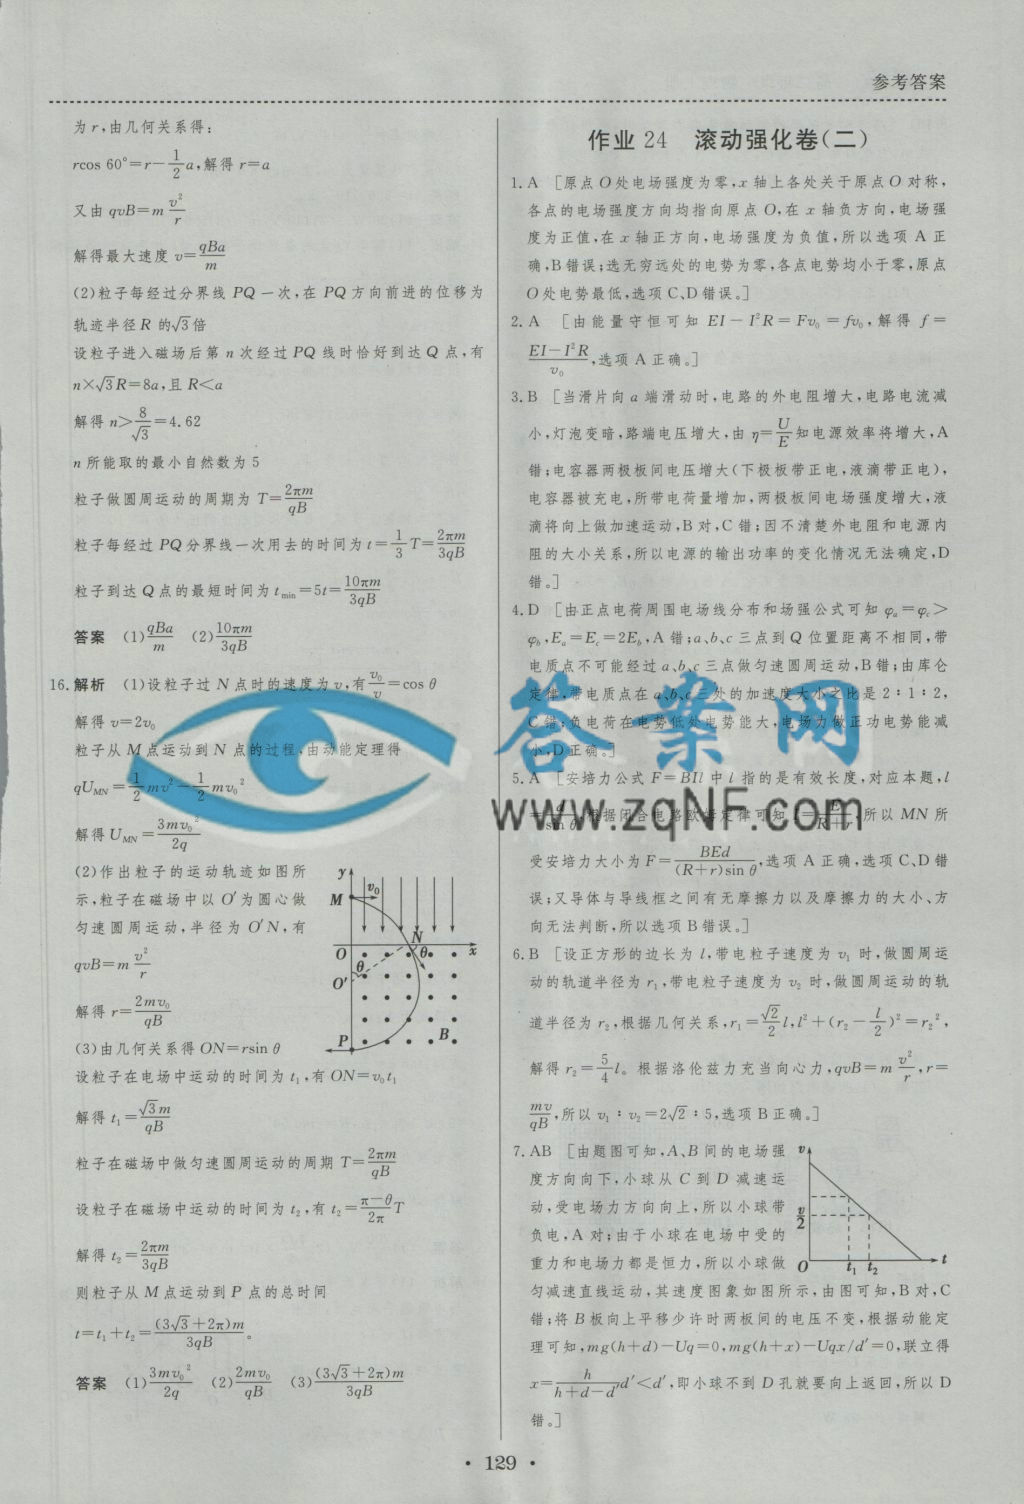 参考答案
为 r,由几何关系得:
rcos 60°=r-\frac{1}{2}a,解得 r=a
又由 qvB=m\frac{v^2}{r}
解得最大速度 v=\frac{qBa}{m}
(2)粒子每经过分界线 PQ 一次,在 PQ 方向前进的位移为
轨迹半径 R 的√3倍
设粒子进入磁场后第 n 次经过 PQ 线时恰好到达 Q 点,有
n×√3R=8a,且 R<a
解得 n>\frac{8}{√3}=4.62
n 所能取的最小自然数为 5
粒子做圆周运动的周期为 T=\frac{2πm}{qB}
粒子每经过 PQ 分界线一次用去的时间为 t=\frac{1}{3}T=\frac{2πm}{3qB}
粒子到达 Q 点的最短时间为 t_{min}=5t=\frac{10πm}{3qB}
答案 (1)\frac{qBa}{m} (2)\frac{10πm}{3qB}
16.解析 (1)设粒子过 N 点时的速度为 v,有\frac{v_0}{v}=cos θ
解得 v=2v_0
粒子从 M 点运动到 N 点的过程,由动能定理得
qU_{MN}=\frac{1}{2}mv^2-\frac{1}{2}mv_0^2
解得 U_{MN}=\frac{3mv_0^2}{2q}
(2)作出粒子的运动轨迹如图所
示,粒子在磁场中以 O′为圆心做
匀速圆周运动,半径为 O′N,有
qvB=m\frac{v^2}{r}
解得 r=\frac{2mv_0}{qB}
y
M
v_0
N
O
x
θ
θ
O′
P
B
(3)由几何关系得 ON=rsin θ
设粒子在电场中运动的时间为 t_1,有 ON=v_0t_1
解得 t_1=\frac{√3m}{qB}
粒子在磁场中做匀速圆周运动的周期 T=\frac{2πm}{qB}
设粒子在磁场中运动的时间为 t_2,有 t_2=\frac{π-θ}{2π}T
解得 t_2=\frac{2πm}{3qB}
则粒子从 M 点运动到 P 点的总时间
t=t_1+t_2=\frac{(3√3+2π)m}{3qB}。
答案 (1)\frac{3mv_0^2}{2q} (2)\frac{2mv_0}{qB} (3)\frac{(3√3+2π)m}{3qB}
作业 24 滚动强化卷(二)
1. A [原点 O 处电场强度为零,x 轴上各处关于原点 O 对称,
各点的电场强度方向均指向原点 O,在 x 轴负方向,电场强
度为正值,在 x 轴正方向,电场强度为负值,所以选项 A 正
确,B 错误;选无穷远处的电势为零,各点电势均小于零,原点
O 处电势最低,选项 C、D 错误。]
2. A [由能量守恒可知 EI-I^2R=Fv_0=fv_0,解得 f=
\frac{EI-I^2R}{v_0},选项 A 正确。]
3. B [当滑片向 a 端滑动时,电路的外电阻增大,电路电流减
小,灯泡变暗,路端电压增大,由 η=\frac{U}{E}知电源效率将增大,A
错;电容器两极板间电压增大(下极板带正电,液滴带正电),
电容器被充电,所带电荷量增加,两极板间电场强度增大,液
滴将向上做加速运动,B 对,C 错;因不清楚外电阻和电源内
阻的大小关系,所以电源的输出功率的变化情况无法确定,D
错。]
4. D [由正点电荷周围电场线分布和场强公式可知 φ_a=φ_c>
φ_b,E_a=E_c=2E_b,A 错;a、b、c 三点到 Q 位置距离不相同,带
电质点不可能经过 a、b、c 三点做匀速圆周运动,B 错;由库仑
定律,带电质点在 a、b、c 三处的加速度大小之比是 2∶1∶2,
C 错;负电荷在电势低处电势能大,电场力做正功电势能减
小,D 正确。]
5. A [安培力公式 F=BIl 中 l 指的是有效长度,对应本题,l
=\frac{d}{sin θ},根据闭合电路欧姆定律可知 I=\frac{E}{R+r},所以 MN 所
受安培力大小为 F=\frac{BEd}{(R+r)sin θ},选项 A 正确,选项 C、D 错
误;又导体与导线框之间有无摩擦力以及摩擦力的大小、方
向无法判断,所以选项 B 错误。]
6. B [设正方形的边长为 l,带电粒子速度为 v_1 时,做圆周运
动的轨道半径为 r_1,带电粒子速度为 v_2 时,做圆周运动的轨
道半径为 r_2,根据几何关系,r_1=\frac{√2}{2}l,l^2+(r_2-\frac{l}{2})^2=r_2^2,
解得 r_2=\frac{5}{4}l。根据洛伦兹力充当向心力,qvB=m\frac{v^2}{r},r=
\frac{mv}{qB},所以 v_1∶v_2=2√2∶5,选项 B 正确。]
7. AB [由题图可知,A、B 间的电场强
度方向向下,小球从 C 到 D 减速运
动,受电场力方向向上,所以小球带
负电,A 对;由于小球在电场中受的
重力和电场力都是恒力,所以小球做
匀减速直线运动,其速度图象如图所示,由图可知,B 对,C
错;将 B 板向上平移少许时两板间的电压不变,根据动能定
理可知,mg(h+d)-Uq=0,mg(h+x)-Uqx/d′=0,联立得
x=\frac{h}{h+d-d′}d′<d′,即小球不到 D 孔就要向上返回,所以 D
错。]
v
\frac{v}{2}
O
t_1 t_2
t
答案网
www.zqNF.com
• 129 •